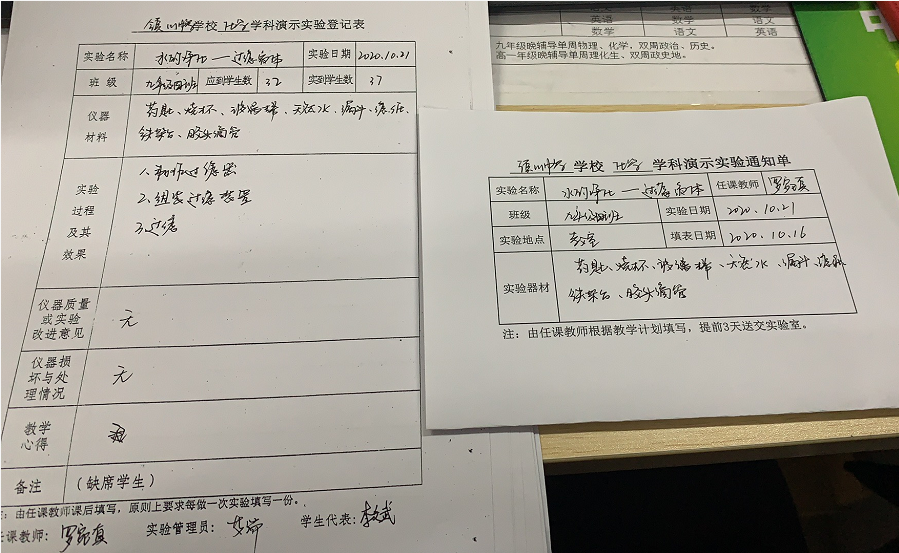 镇川中学学校 化学 学科演示实验登记表
实验名称 水的净化——过滤液体 实验日期 2020.10.21
班 级 九年级四班 应到学生数 37 实到学生数 37
仪器材料 药匙、烧杯、玻璃棒、天然水、漏斗、滤纸、
铁架台、胶头滴管
实验过程及其效果 1.制作过滤器
2.组装过滤装置
3.过滤
仪器质量或实验改进意见 无
仪器损坏与处理情况 无
教学心得
备注 (缺席学生)
注：由任课教师课后填写，原则上要求每做一次实验填写一份。
任课教师： 实验管理员： 学生代表：
语文 英语 数学
英语 数学 语文
数学 语文 英语
九年级晚辅导单周物理、化学，双周政治、历史。
高一年级晚辅导单周理化生、双周政史地。
镇川中学 学校 化学 学科演示实验通知单
实验名称 水的净化——过滤液体 任课教师
班级 九年级四班 实验日期 2020.10.21
实验地点 教室 填表日期 2020.10.16
实验器材 药匙、烧杯、玻璃棒、天然水、漏斗、滤纸
铁架台、胶头滴管
注：由任课教师根据教学计划填写，提前3天送交实验室。